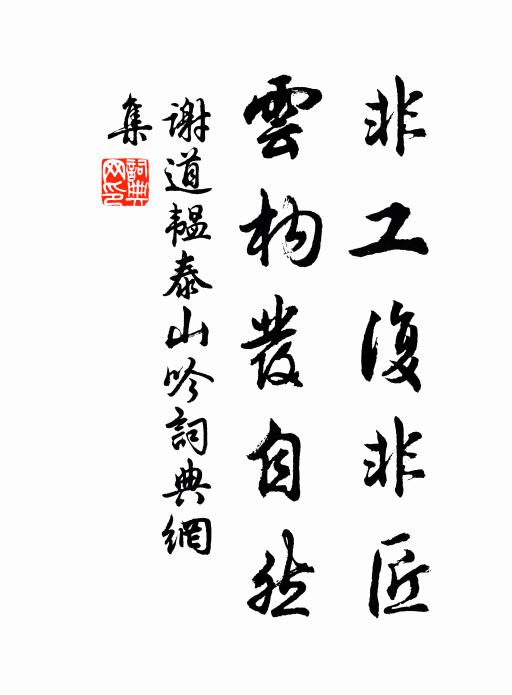 非工復非匠
雲构發自然
謝道韞泰山吟詞典網
集
詞典網印